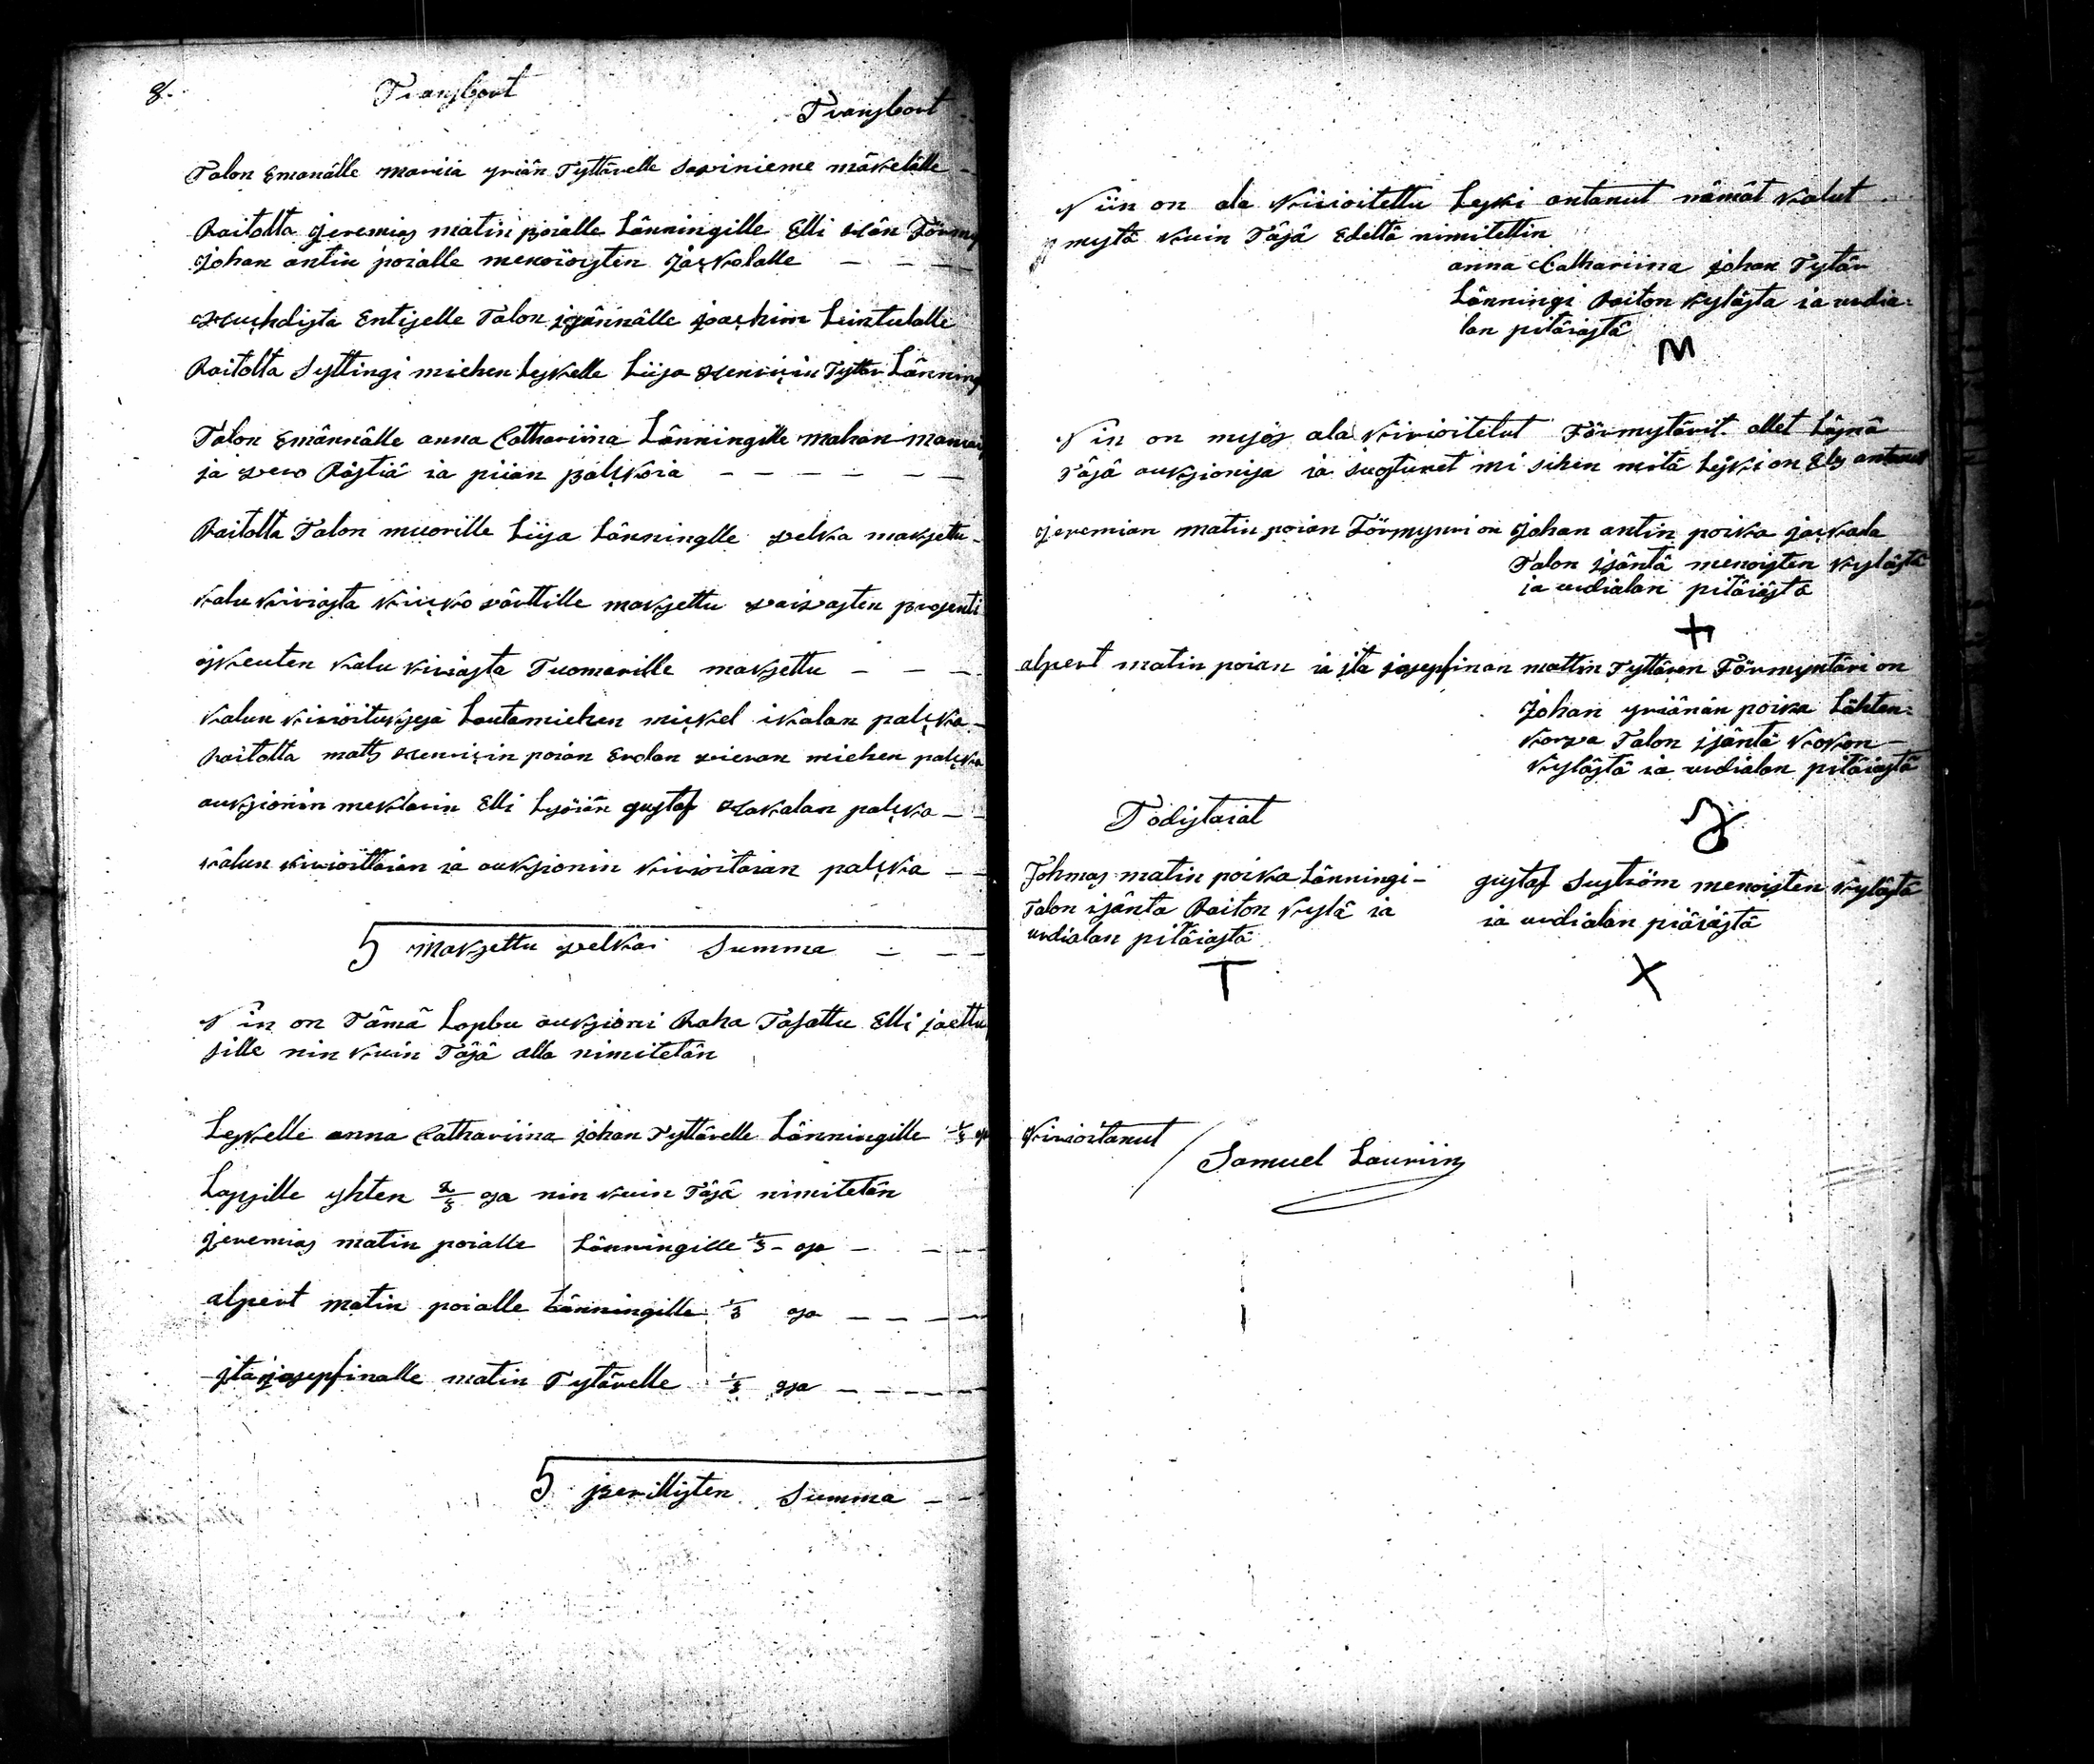 8.
Transbort
Transbort
Talon Emänälle mariia yriän Tyttärelle Savinieme mäkelälle
Raitolta Jeremias matin poialle Länningille Elli Hän Förmy
Johan antin poialle menoiösten Jaskolalle
Huhdista Entiselle Talon isännälle Joachim Leintulalle
Raitolta Syttingi miehen Leskelle Liisa Henricin Tytär Länning
Talon Emännälle anna Cathariina Länningille mahan
ja vero Rästiä ia piian palkoia
Raitolta Talon muorille Liisa Länninglle velka maksettu
kalu kiriasta kircko värttille maksettu vaivasten prosenti
oikeuten kalu kiriasta Tuomarille maksettu
kalun kirioituksesa Lautamiehen mickel ikalan palcka
Raitolta mats Henricin poian Erolan vieran miehen palcka
auksionin meklarin Elli Lyöiän gustaf Hakalan palcka
kalun kirioittaian ia auksionin kirioitaian palcka
5 Maksettu velkai Summa
Nin on Tämä Lopbu auksioni Raha Tasattu Elli jaettu
sille nin kuin Täsä alla nimitetän
Leskelle anna Cathariina johan Tyttärelle Länningille 1/3
Lapsille yhten 2/3 osa nin kuin Täsä nimitetän
Jeremias matin poialle Länningille 1/3 osa
alpert matin poialle Länningille 1/3 osa
ita josepfinalle matin Tytärelle 1/3 osa
5 perillisten Summa
Niin on ala kirioitettu Leski antanut nämät kalut
mystä kuin Täsä Edeltä nimitettin
anna Cathariina johan Tytär
Länningi Raiton kylästa ia urdia-
lan pitäiästä
M
Nin on myös ala kirioitetut Förmytärit ollet Läsnä
Täsä auksionisa ia suostunet mi sihen mitä Leski on
Jeremian matin poian Förmynri on Johan antin poika jaskala
Talon isäntä menoisten kylästä
ia urdialan pitäiästä
+
alpert matin poian ia ita josepfinan mattin Tyttären Förmyntäri on
Johan yriänän poika Lähten-
korva Talon isäntä kokon
kylästä ia urdialan pitäiastä
Todistaiat
Tohmas matin poika Länningi-
Talon isänta Raiton kylä ia
urdialan pitäiasta
T
gustaf Suström menoisten kylästä
ia urdialan piäiästä
X
Kirioitanut
Samuel Lauriin